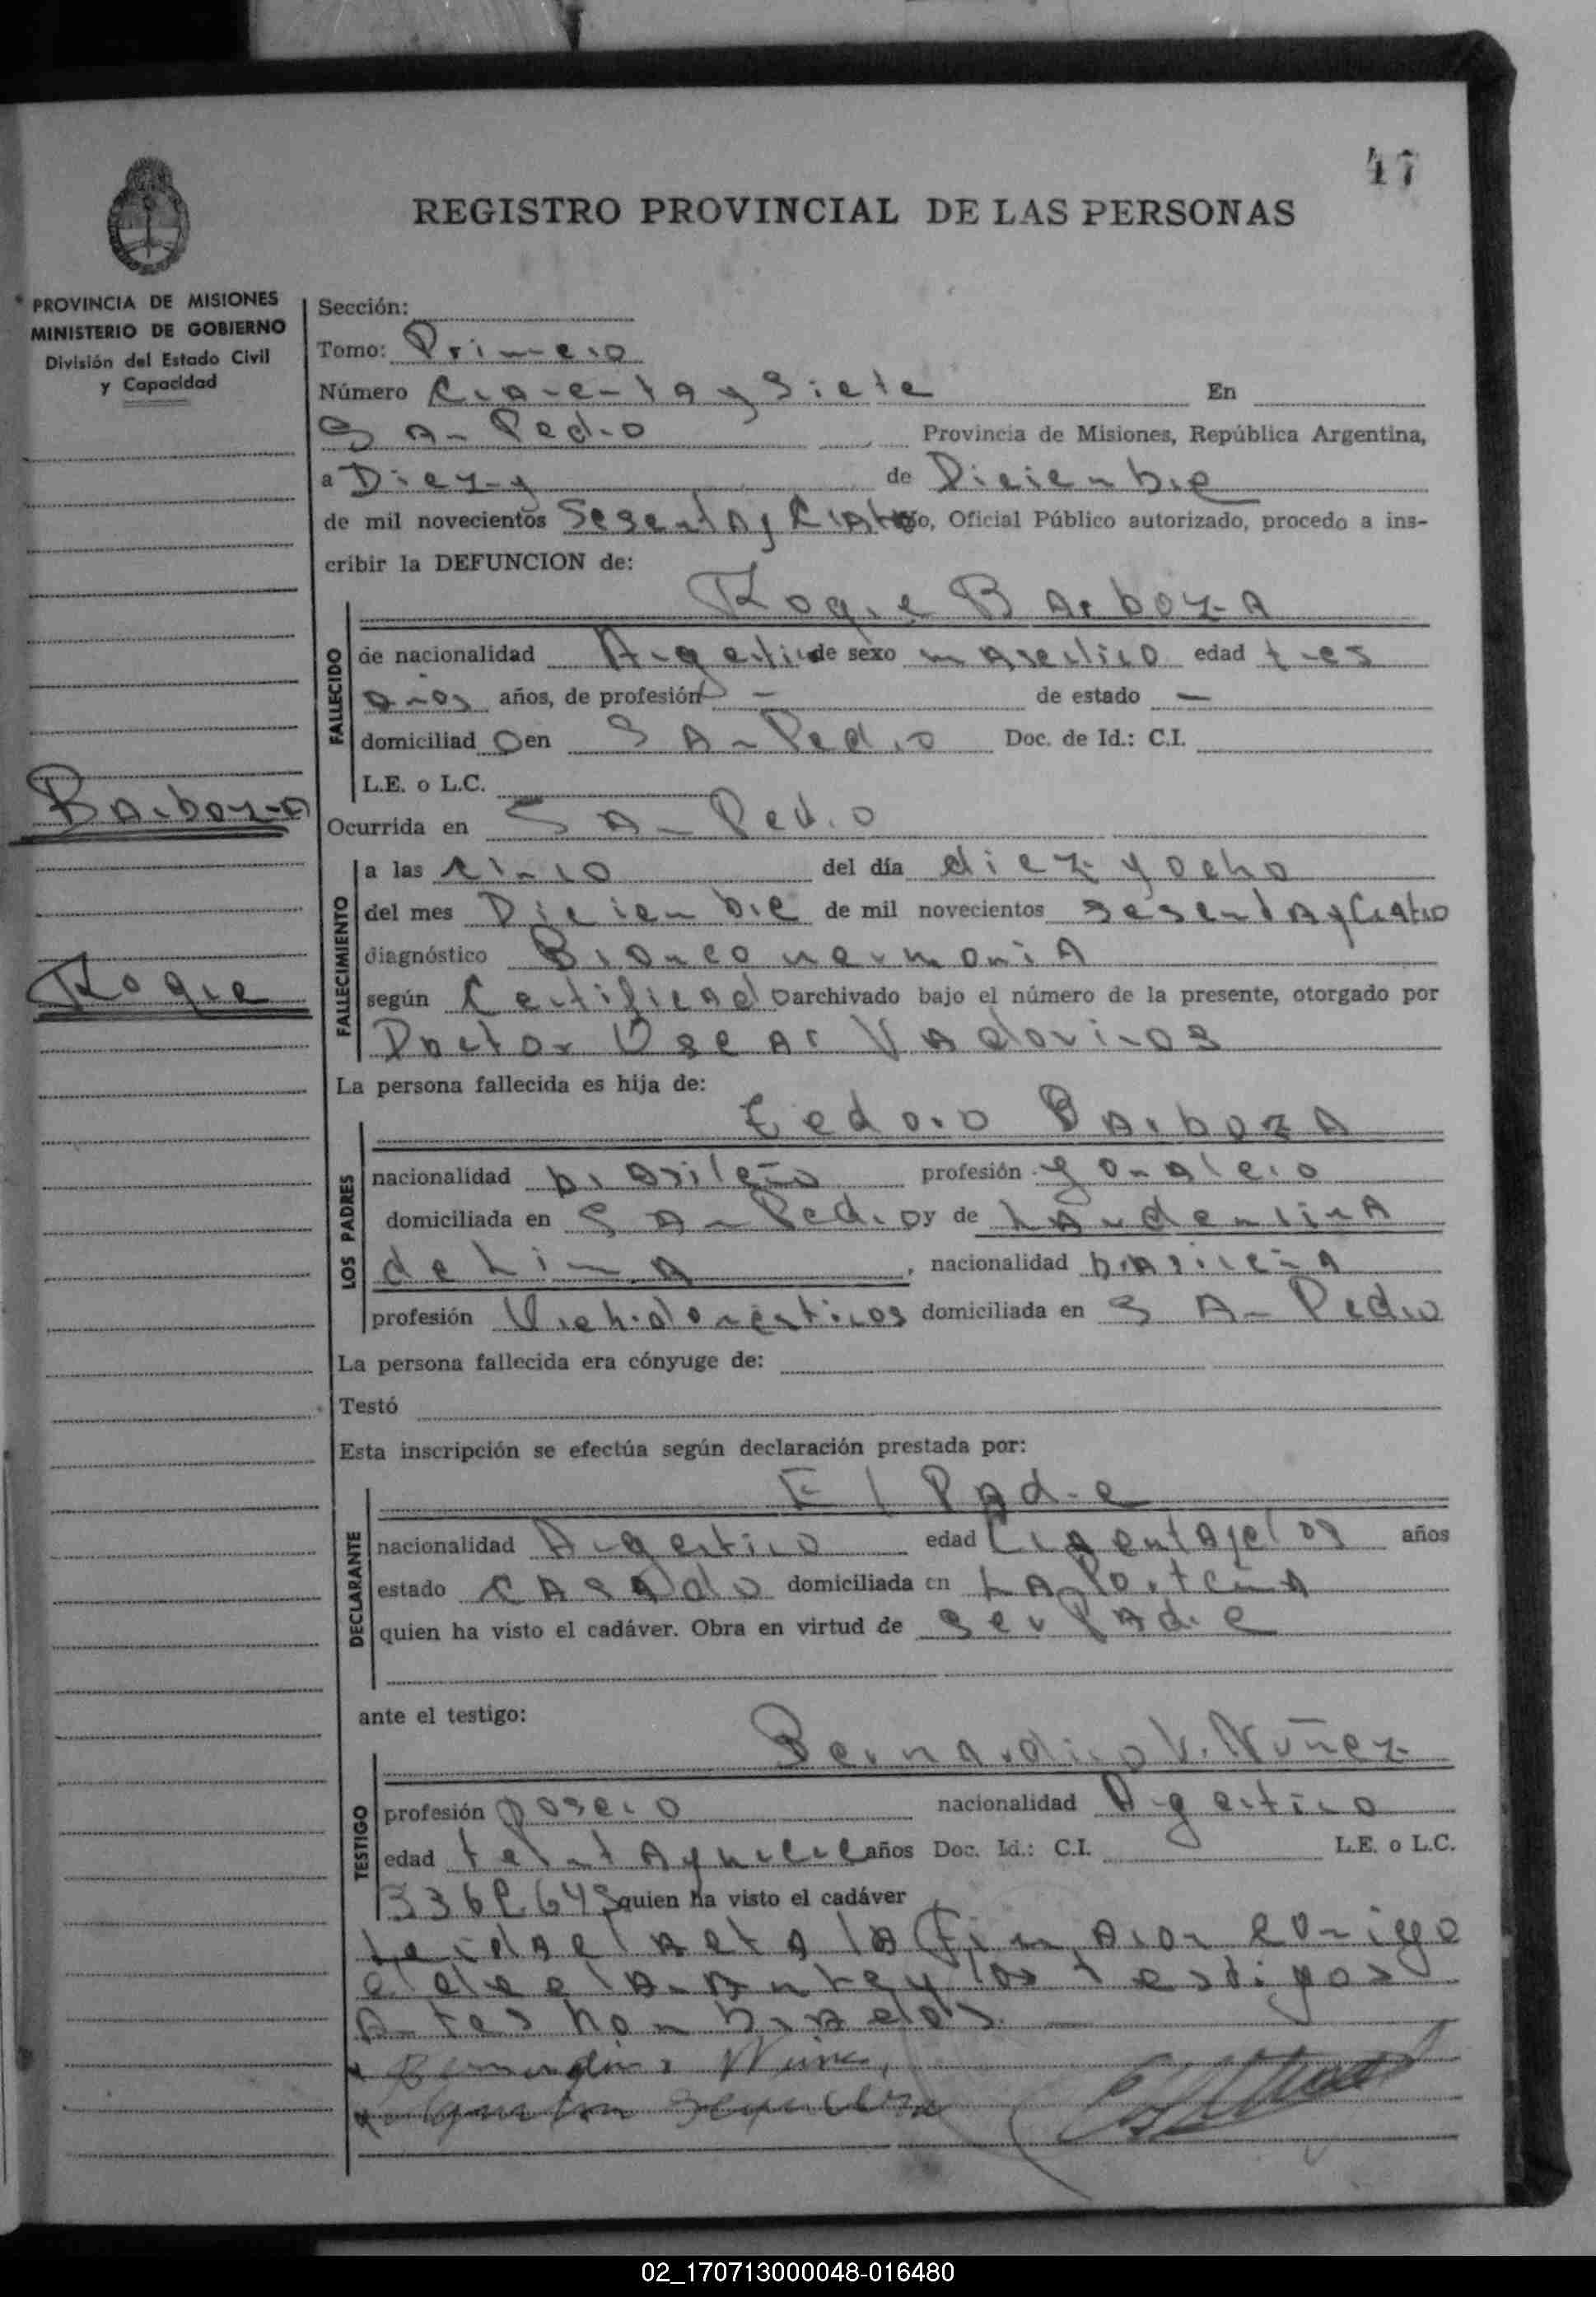 47
REGISTRO PROVINCIAL DE LAS PERSONAS
PROVINCIA DE MISIONES
MINISTERIO DE GOBIERNO
División del Estado Civil
y Capacidad
Barboza
Roque
Sección:
Tomo: Primero
Número Cuarenta y Siete En
San Pedro Provincia de Misiones, República Argentina,
a Diez y de Diciembre
de mil novecientos Sesenta y Cuatro yo, Oficial Público autorizado, procedo a ins-
cribir la DEFUNCION de:
Roque Barboza
FALLECIDO
de nacionalidad Argentino de sexo masculino edad tres
años años, de profesión - de estado -
domiciliad o en San Pedro Doc. de Id.: C.I.
L.E. o L.C.
Ocurrida en San Pedro
FALLECIMIENTO
a las cinco del día diez y ocho
del mes Diciembre de mil novecientos sesenta y Cuatro
diagnóstico Bronconeumonia
según Certificado archivado bajo el número de la presente, otorgado por
Doctor Oscar
La persona fallecida es hija de:
LOS PADRES
Barboza
nacionalidad brasileño profesión
domiciliada en San Pedro y de
de Lima, nacionalidad brasileña
profesión domiciliada en San Pedro
La persona fallecida era cónyuge de:
Testó
Esta inscripción se efectúa según declaración prestada por:
El Padre
DECLARANTE
nacionalidad Argentino edad años
estado casado domiciliada en La Porteña
quien ha visto el cadáver. Obra en virtud de ser Padre
ante el testigo:
Bernardino V. Nuñez
TESTIGO
profesión nacionalidad Argentino
edad años Doc. Id.: C.I. L.E. o L.C.
quien ha visto el cadáver
Leida el acta la Firmaron conmigo
el declarante y los testigos
Antes nombrados.
Bernardino Nuñez
02_170713000048-016480